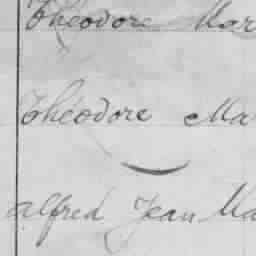 Théodore Mar
Théodore Ma
alfred Jean Ma